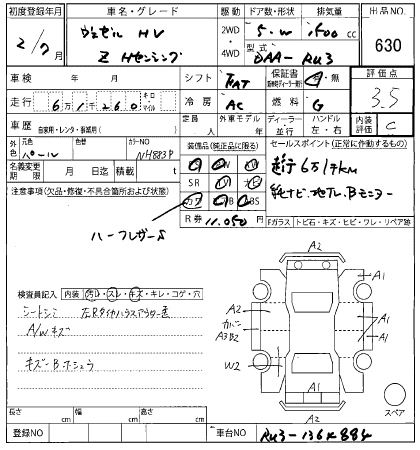 初度登録年月 車名・グレード ドア数・形状 排気量 出品NO.
2/7 ヴェゼル HV 2WD・4WD 5.W 1500 cc 630
Z Hセンシング 型式 DAA-RU3
車検 年 月 シフト FAT 保証書 有・無 評価点
走行 6万1千260 キロ マイル 冷房 AC 燃料 G 3.5
車歴 自家用・レンタ・事業用( ) 定員 人 外車モデル 年 ディーラー 並行 ハンドル 左・右 内装 C
外色 元色 パール 色替 カラーNO NH883P
装備品(純正品に限る) セールスポイント(正常に作動するもの)
名義変更期限 月 日迄 積載 t
SR ナビ ABS
走行6万1千km
注意事項(欠品・修復・不具合箇所および状態)
純ナビ.地デジ.Bモニター
R券 11,050
ハーフレザー
Fガラス トビ石・キズ・ヒビ・ワレ・リペア跡
検査員記入 内装 汚レ・スレ・キズ・キレ・コゲ・穴
シートシミ
A/Wキズ
キズ
A2
A1
A2
カバー
A3 B2
A1
A1
W2
A1
A2
スペア
長さ cm 幅 cm 高さ cm
登録NO 車台NO RU3-1364884